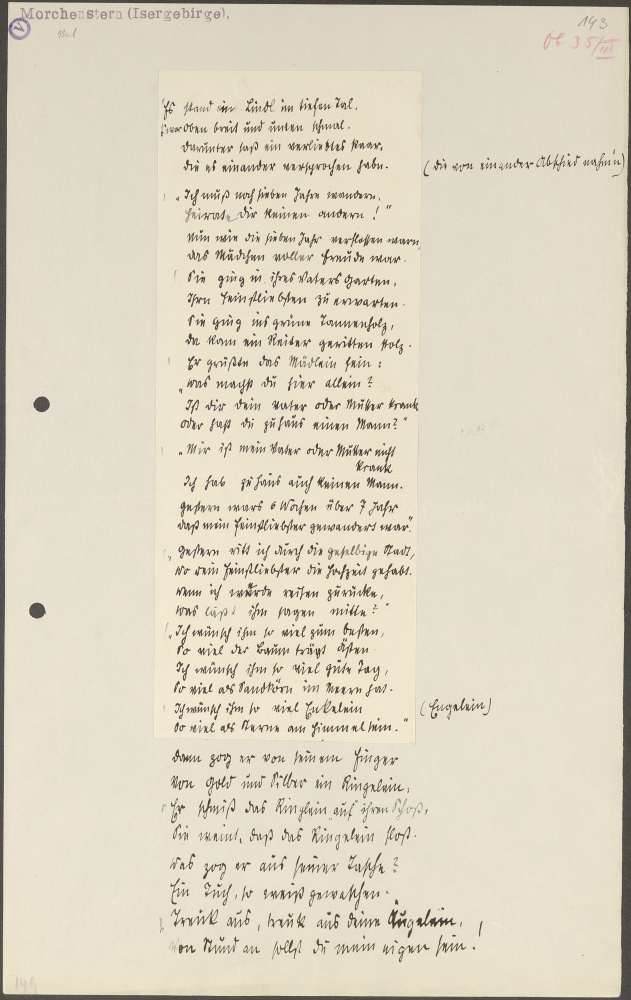 Morchenstern (Isergebirge).
V
143
Es stand ein Lindl im tiefen Tal.
war oben breit und unten schmal.
Darunter saß ein verliebtes Paar,
die es einander versprochen habn.
(die von einander Abschied nahm'n)
„Ich muß noch sieben Jahre wandern,
heirate dir keinen andern!“
Nun wie die sieben Jahr verflossen warn,
das Mädchen voller Freude war.
Sie ging in ihres Vaters Garten,
Ihrn Feinsliebsten zu erwarten.
Sie ging ins grüne Tannenholz,
da kam ein Reiter geritten stolz.
Er grüßte das Mädlein fein:
„was machst du hier allein?
Ist dir dein Vater oder Mutter krank
oder hast du zuhaus einen Mann?“
„Mir ist mein Vater oder Mutter nicht
krank
Ich hab zuhaus auch keinen Mann.
gestern wars 6 Wochen über 7 Jahr
daß mein Feinsliebster gewandert war“.
„gestern ritt ich durch die Stadt,
wo dein Feinsliebster die Hochzeit gehabt.
wenn ich würde reisen zurücke,
was läßt ihm sagen mitte?“
„Ich wünsch ihm so viel zum besten,
So viel der Baum trägt Ästen.
Ich wünsch ihm so viel gute Tag,
So viel als Sandkörn im Meern hat.
Ich wünsch ihm so viel Enkelein
(Engelein)
So viel als Sterne am Himmel sein.“
Dann zog er von seinem Finger
Von Gold und Silber ein Ringelein.
Er schmiß das Ringlein auf ihren Schoß,
Sie weint, daß das Ringelein floß.
Was zog er aus seiner Tasche?
Ein Tuch, so weiß gewaschen.
Treuk aus, treuk aus deine Äugelein,
von Stund an sollst du mein eigen sein!
149